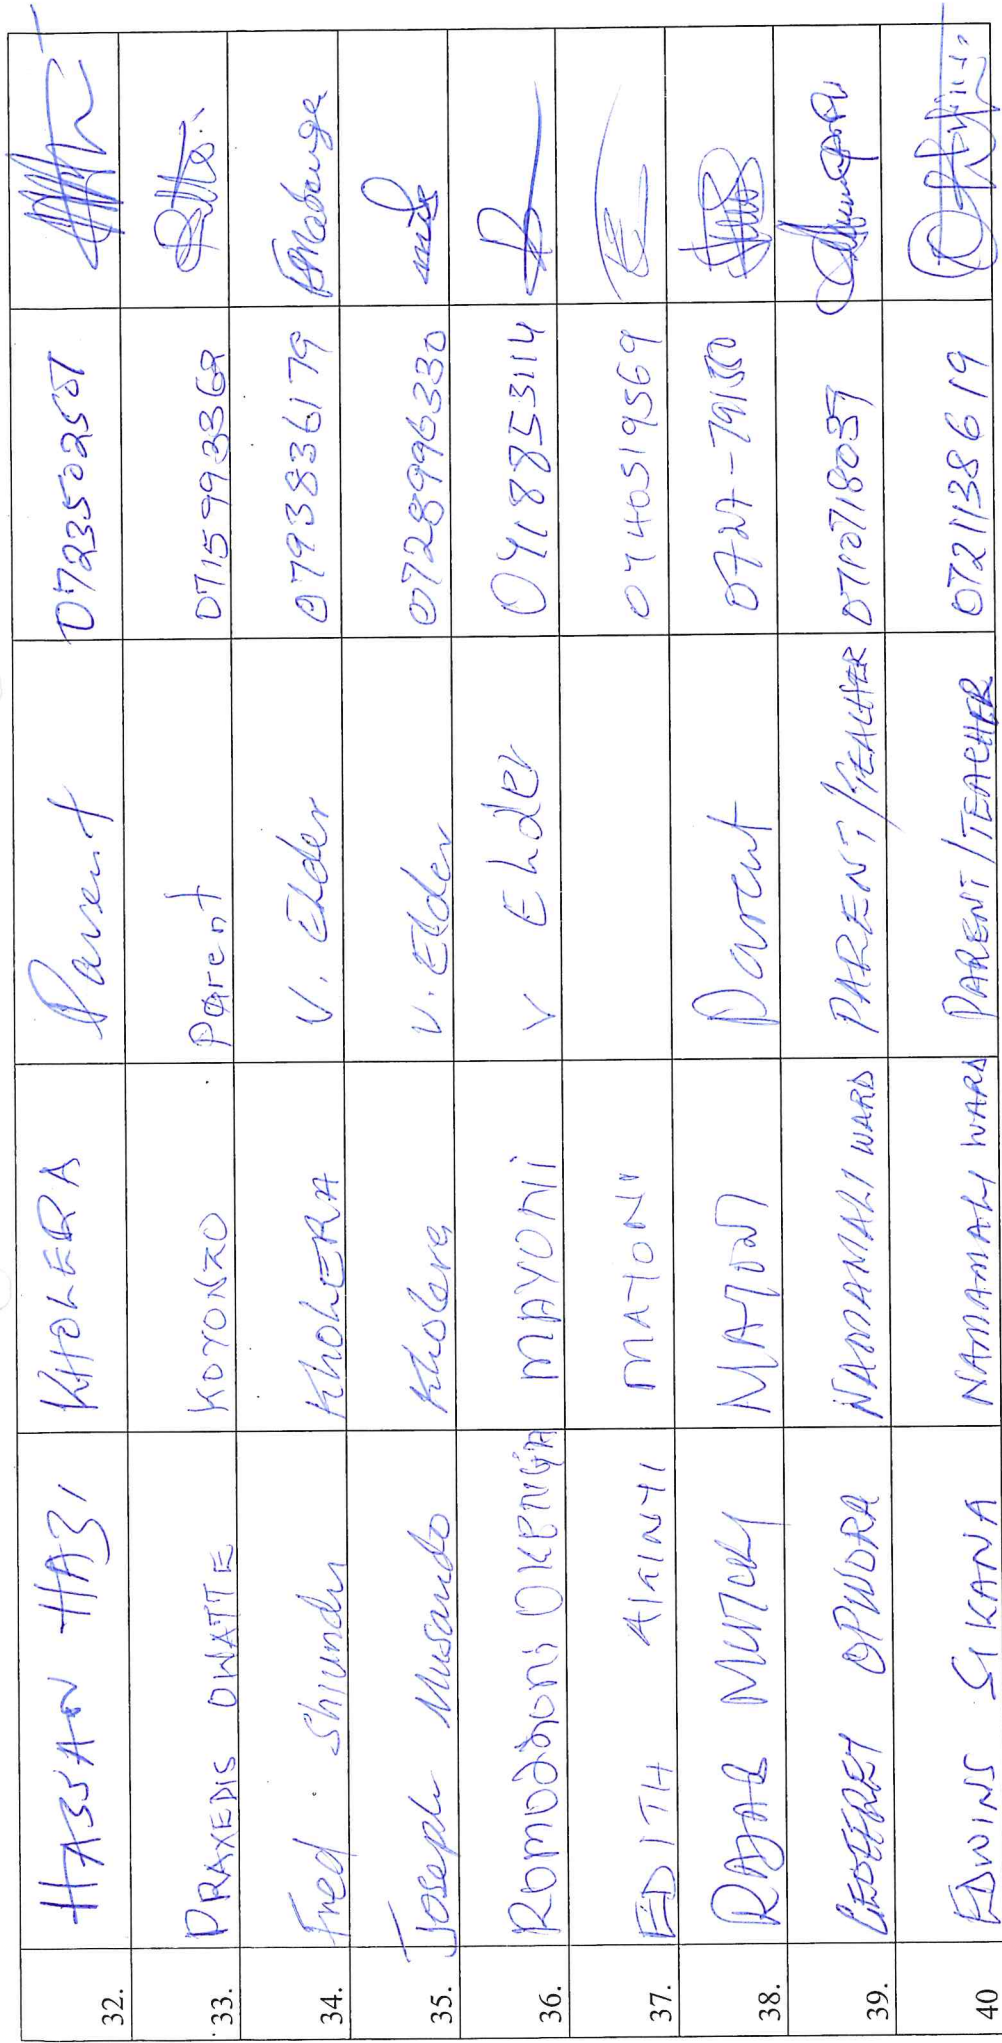 32. HASSAN HAZI KHOLERA Parent 0723502501
33. PRAXEDIS OWATTE KOYONZO Parent 0715993362
34. Fred Shiundu KhoLERA V. Elder 0793836179
35. Joseph Musando Kholera V. Elder 0728996330
36. Romodhoni OKENGA MAYONI V Elder 0418853114
37. EDITH MAYONI 0740519569
38. RAJAB MAYONI Parent
39. GEOFFREY OPWORA NAMAMALI WARD PARENT/TEACHER
40 EDWINS SIKANA NAMAMALI WARD PARENT/TEACHER 0721138619